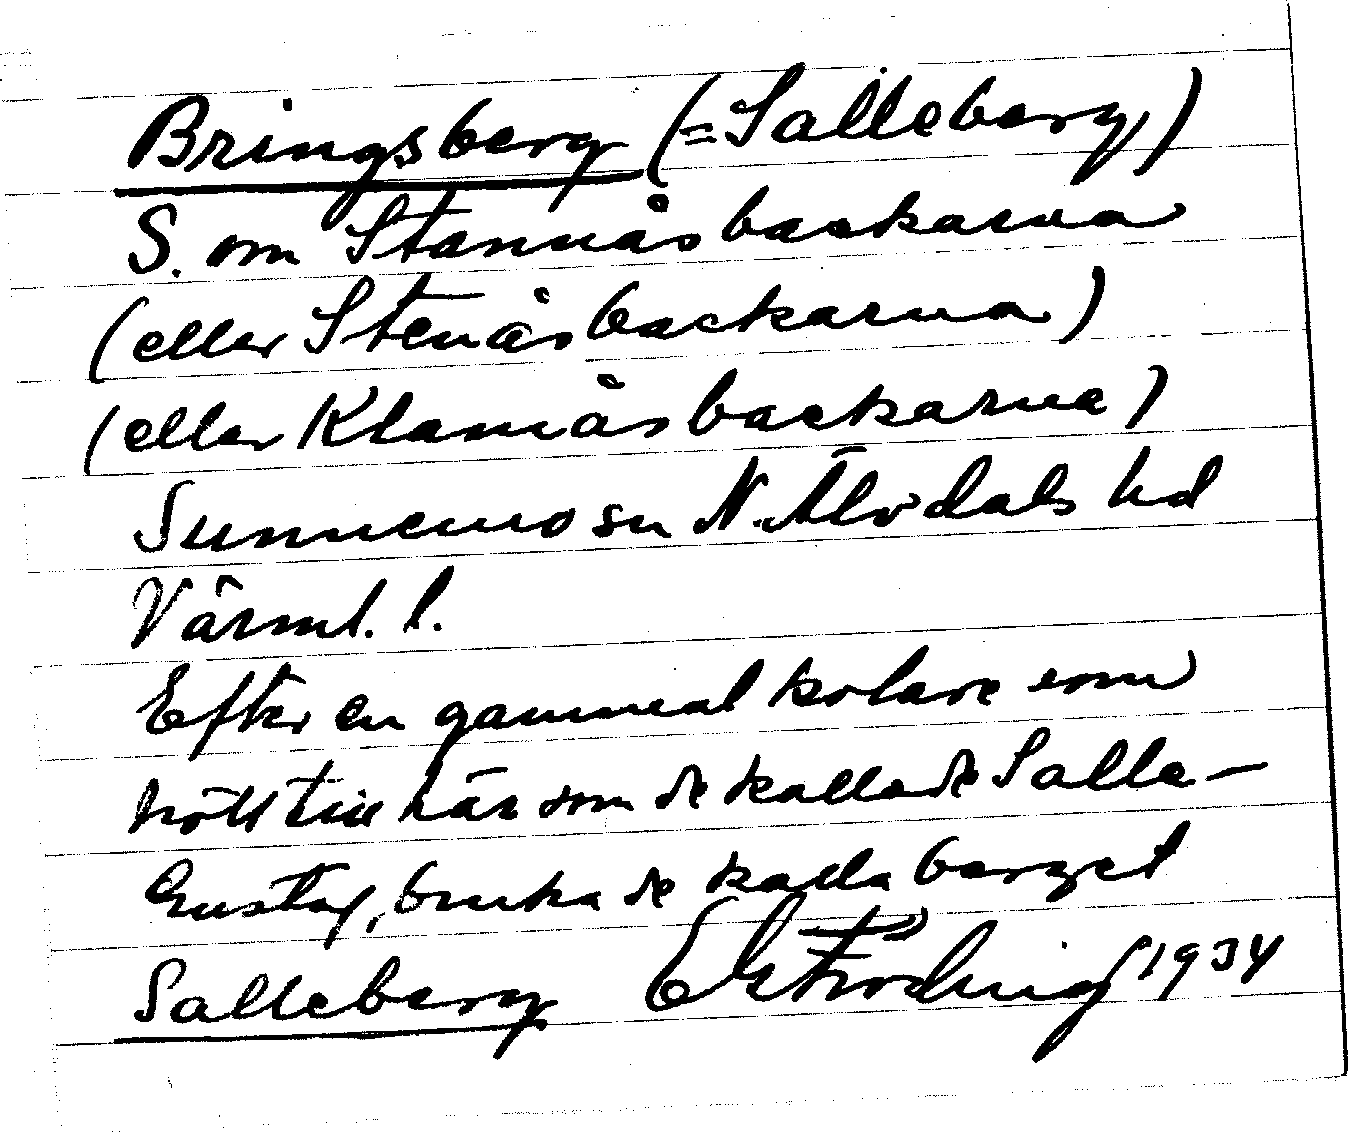 Bringsberg (=Salleberg,)
S. om Stannåsbackarna
(eller Stenåsbackarna)
(eller Klamåsbackarna)
Sunnemo sn N. Älvdals hd
Värml. l.
Efter en gammal kolare som
höll till här som de kallade Salle-
Gustaf, bruka de kalla berget
Salleberg 1934